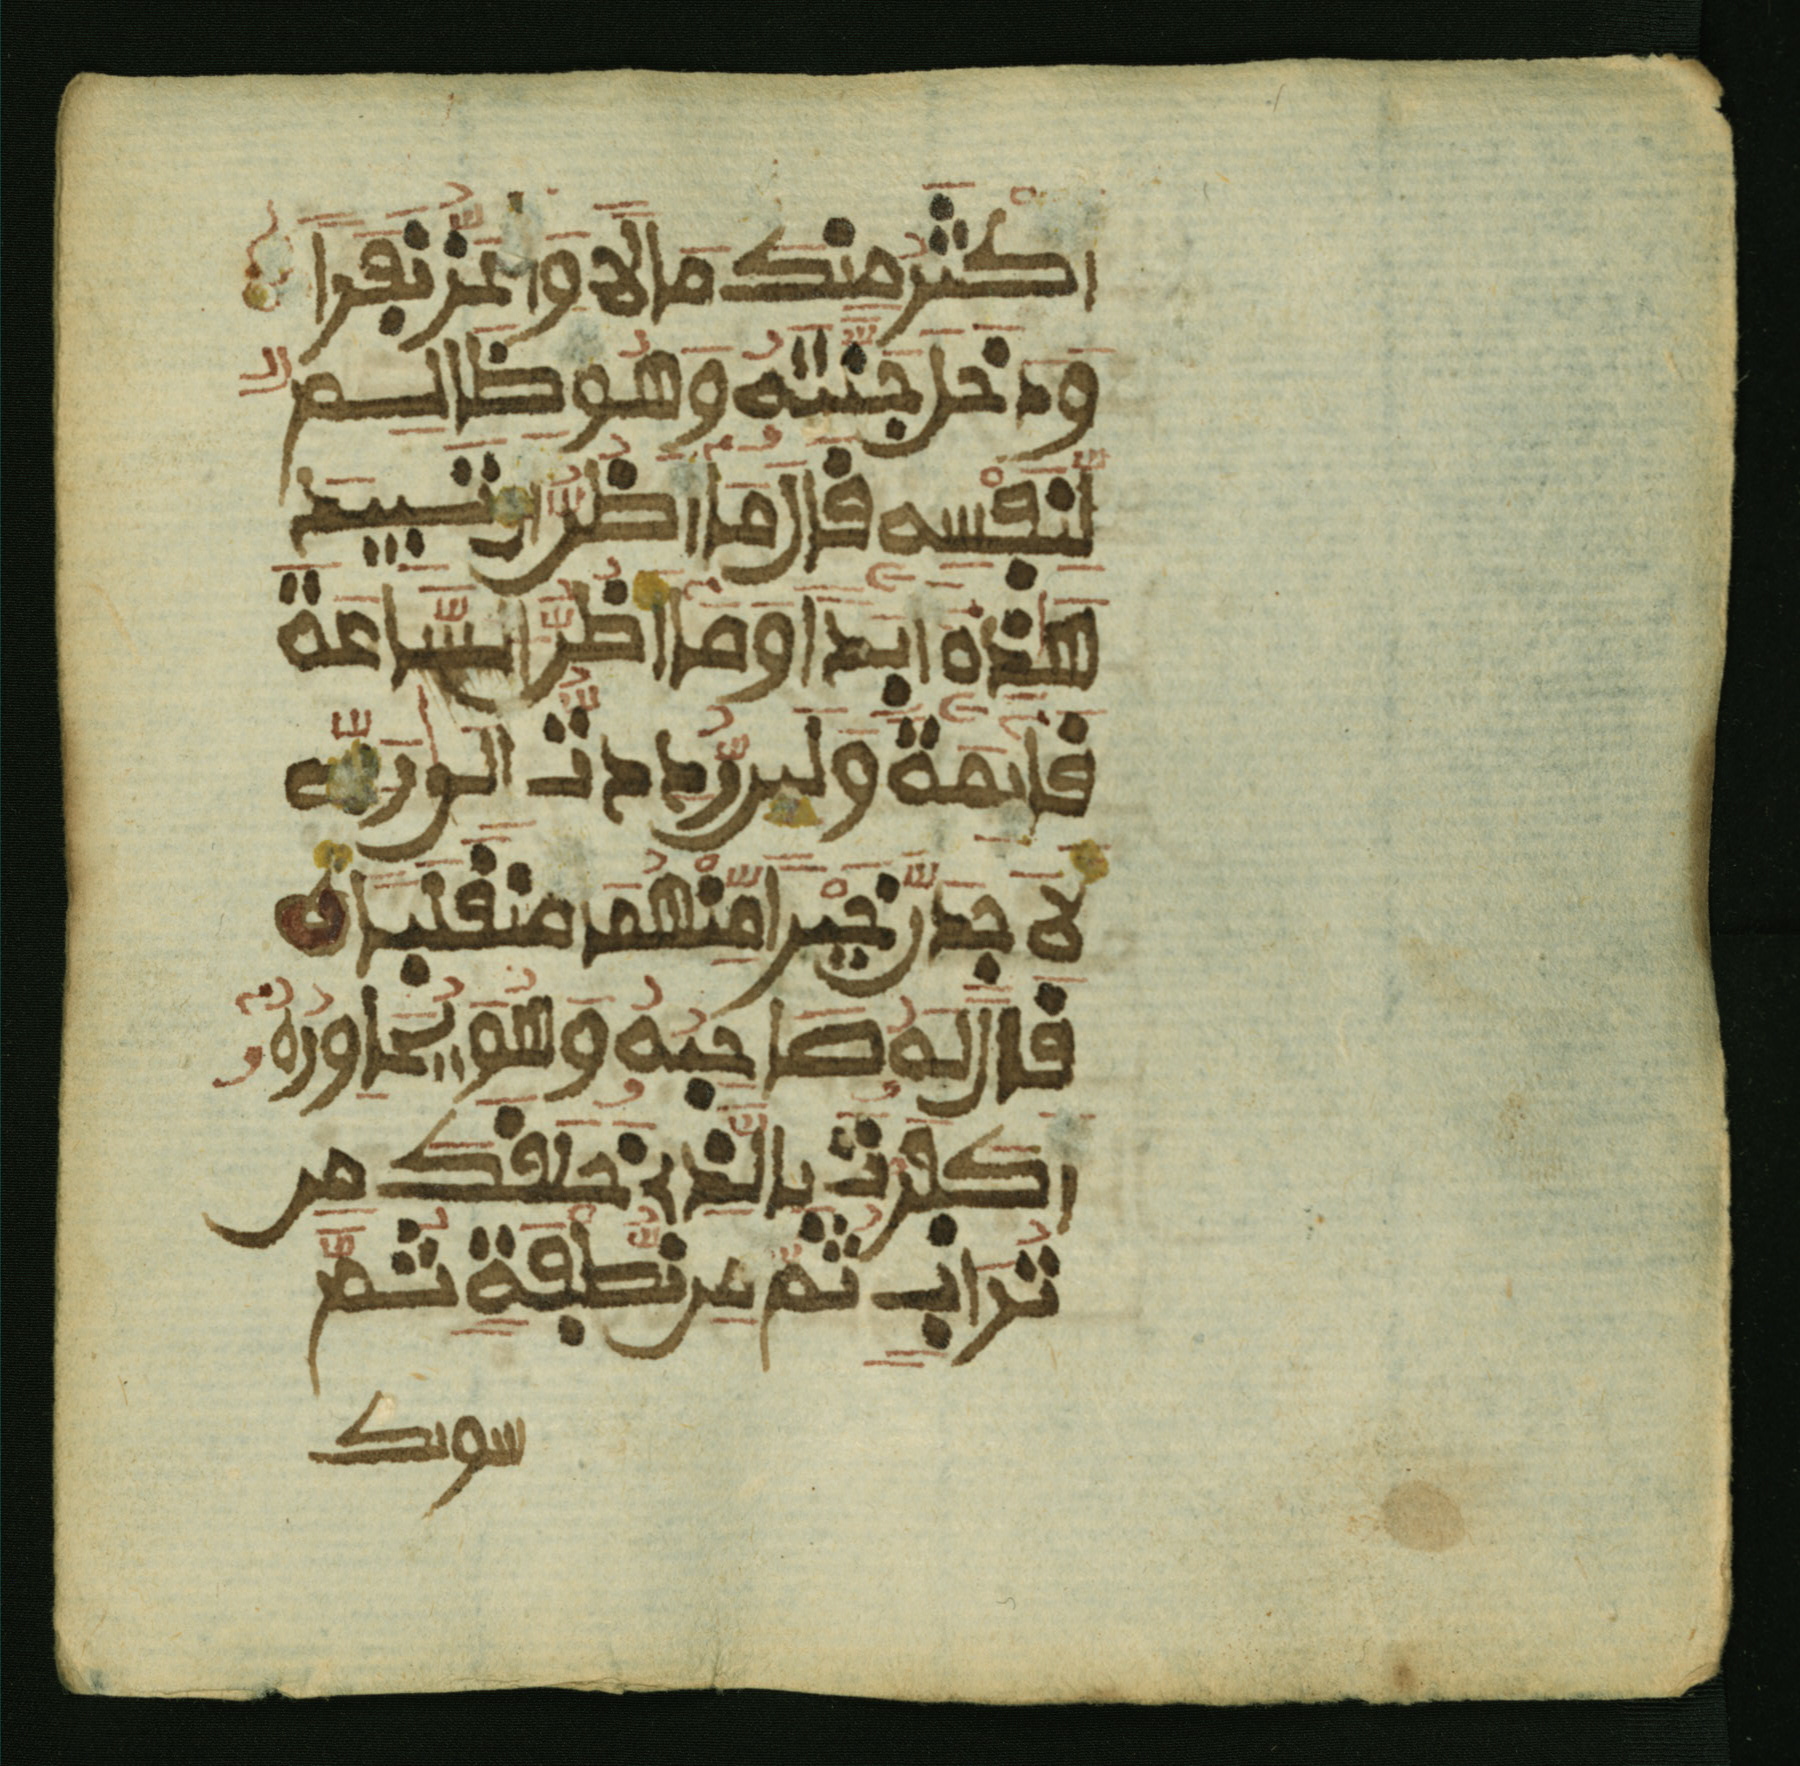 أَكْثَرُ مِنكَ مَالًا وَأَعَزُّ نَفَرًا
وَدَخَلَ جَنَّتَهُ وَهُوَ ظَالِمٌ
لِّنَفْسِهِ قَالَ مَا أَظُنُّ أَن تَبِيدَ
هَذِهِ أَبَدًا وَمَا أَظُنُّ السَّاعَةَ
قَائِمَةً وَلَئِن رُّدِدتُّ إِلَى رَبِّي
لَأَجِدَنَّ خَيْرًا مِّنْهُمَا مُنقَلَبًا
قَالَ لَهُ صَاحِبُهُ وَهُوَ يُحَاوِرُهُ
أَكَفَرْتَ بِالَّذِي خَلَقَكَ مِن
تُرَابٍ ثُمَّ مِن نُّطْفَةٍ ثُمَّ
سويك